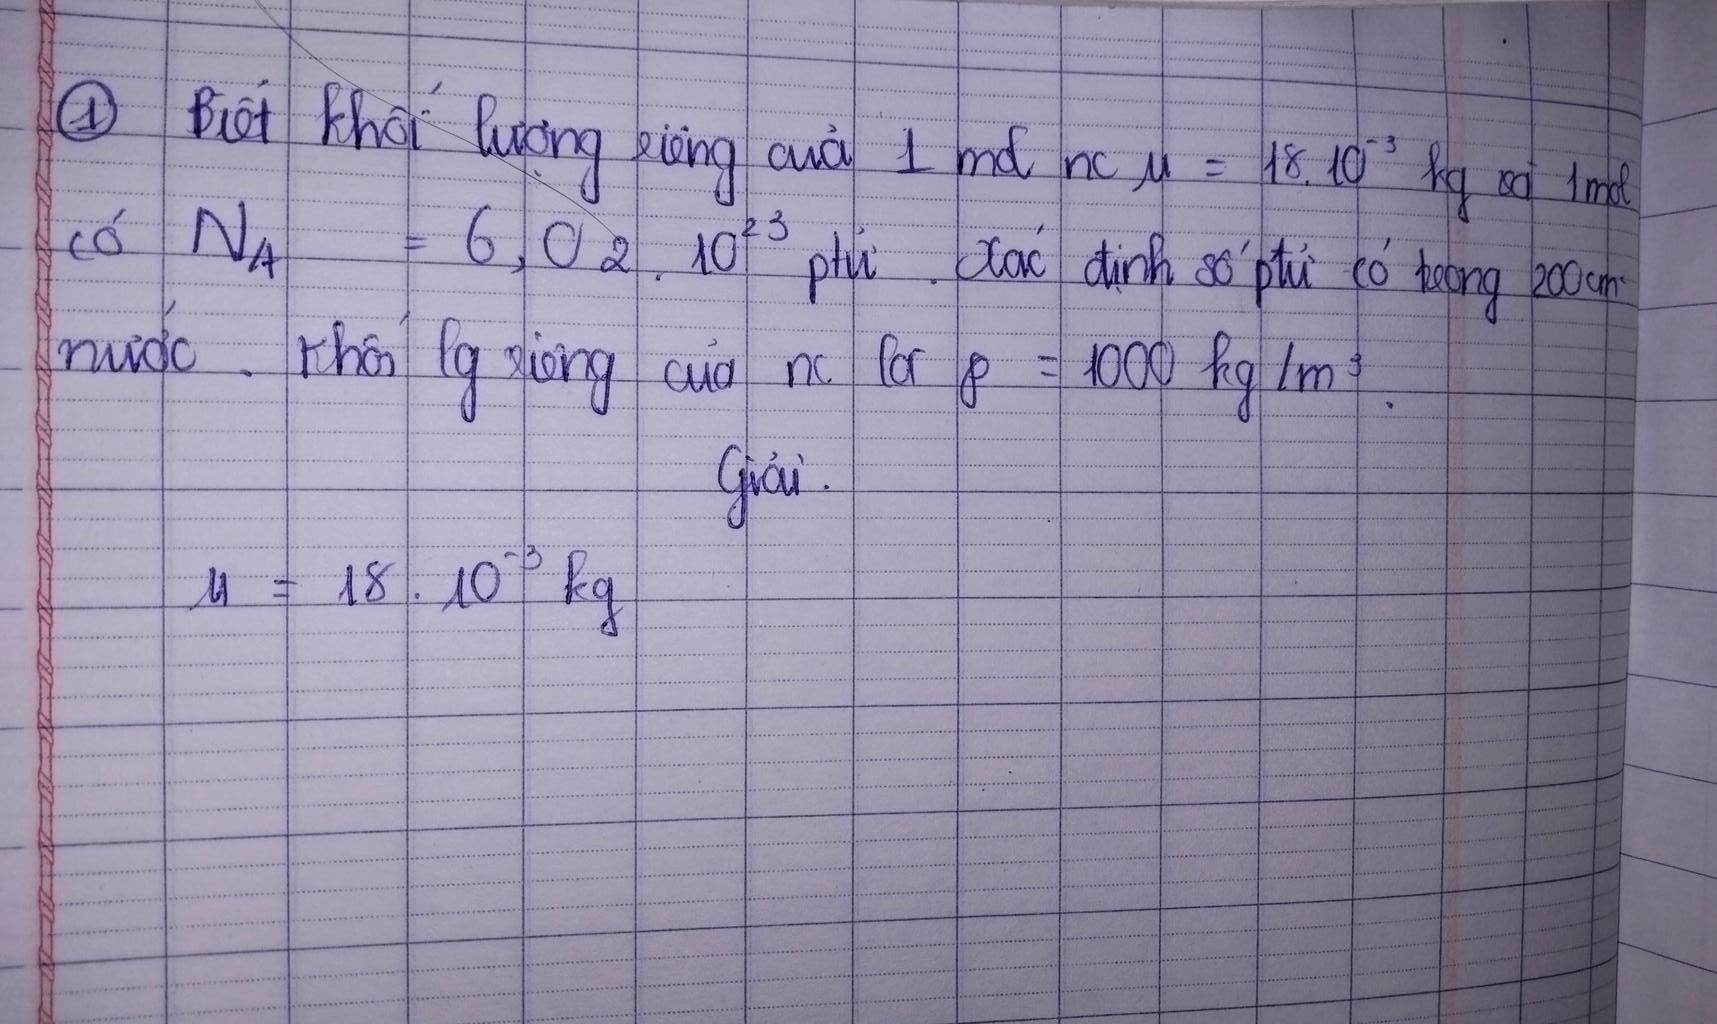 ① Biết khối lượng riêng của 1 mol nc μ = 18.10⁻³ kg và 1mol
có N_A = 6,02.10²³ ptử. Xác định số ptử có trong 200cm³
nước. Khối lg riêng của nc là ρ = 1000 kg/m³.
Giải.
μ = 18.10⁻³ kg